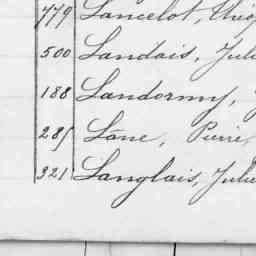 779 Lancelot,
500 Landais, Juli
188 Landormy, J
285 Lane, Pierre,
321 Langlais, Julie